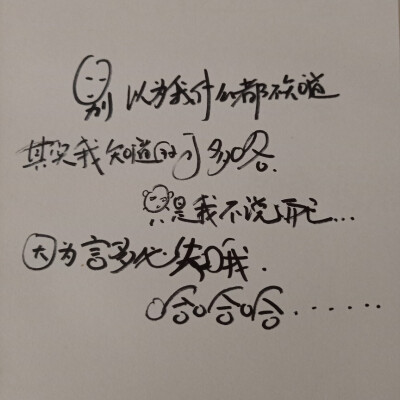 别以为我什么都不知道
其实我知道的可多哈
只是我不说而已...
因为言多必失哦
哈哈哈......